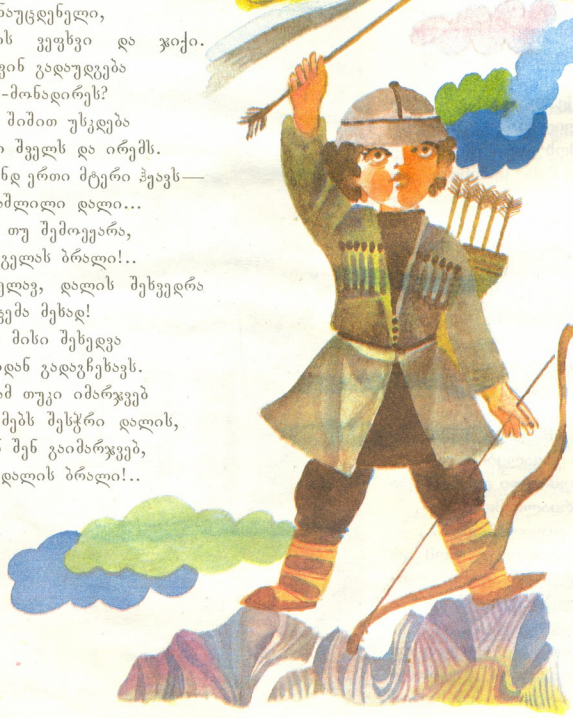 ნაუცდენელი,
ის ვეფხვი და ჯიქი.
ვინ გადაუდგება
-მონადირეს?
შიშით უსკდება
შველს და ირემს.
ერთი მტერი ჰყავს—
დალი...
თუ შემოეყარა,
ბრალი!..
დალის შეხვედრა
მეხად!
მისი შეხედვა
გადაგჩეხავს.
თუკი იმარჯვებ
შესჭრი დალის,
შენ გაიმარჯვებ,
დალის ბრალი!..